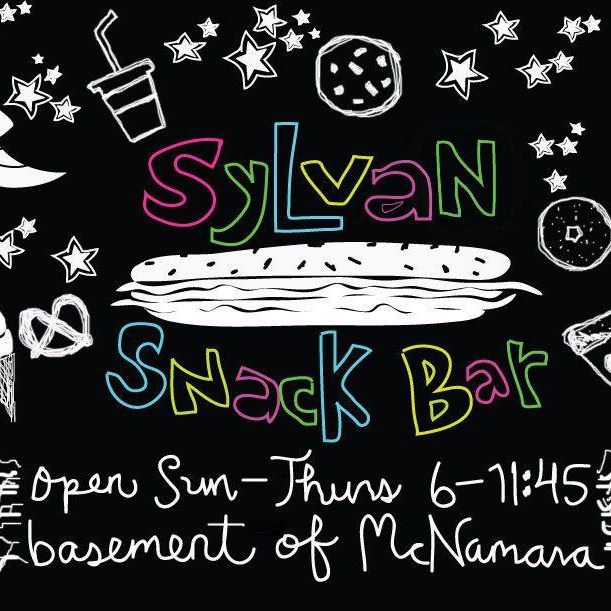 Sylvan
Snack Bar
open Sun-Thurs 6-11:45
basement of McNamara